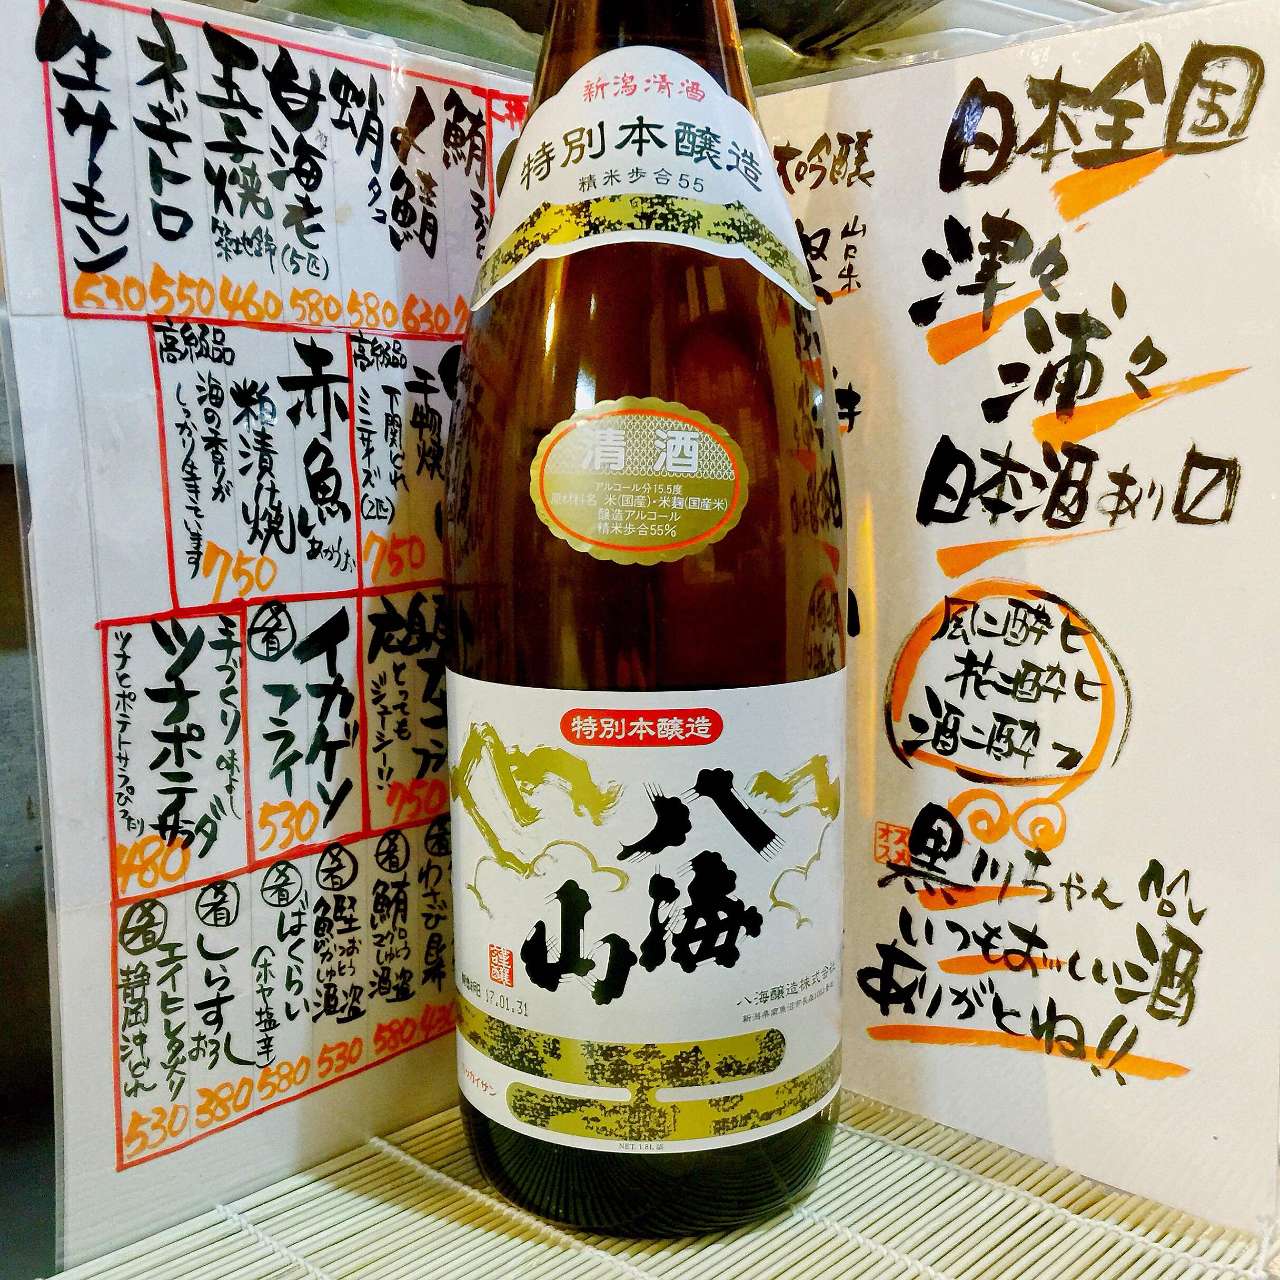 新潟清酒
特別本醸造
精米歩合55
清酒
アルコール分15.5度
原材料名 米(国産)・米麹(国産米)
醸造アルコール
精米歩合55%
特別本醸造
八海山
謹醸
17.01.31
八海醸造株式会社
NET. 1.8L 詰
日本全国
津々
浦々
日本酒あり〼
風ニ酔ヒ
花ニ酔ヒ
酒ニ酔フ
オススメ
黒川ちゃん
いつもおいしい酒
ありがとね!!
大吟醸
鮪
〆鯖
蛸
タコ
甘海老
(5匹)
580
玉子焼
460
ネギトロ
550
生サーモン
630
580
630
高級品
干物焼
下関とれ
ミニサイズ(2匹)
750
高級品
赤魚
あかうお
粕漬け焼
海の香りが
しっかり生きています
750
とっても
ジューシー!!
750
イカゲソ
フライ
530
手づくり
味よし
ツナポテサラダ
ツナとポテトサラブぴったり
480
わさび昆
430
鮪
酒盗
580
鰹
酒盗
530
ばくらい
(ホヤ塩辛)
580
しらす
おろし
380
エイヒレ炙り
静岡沖とれ
530